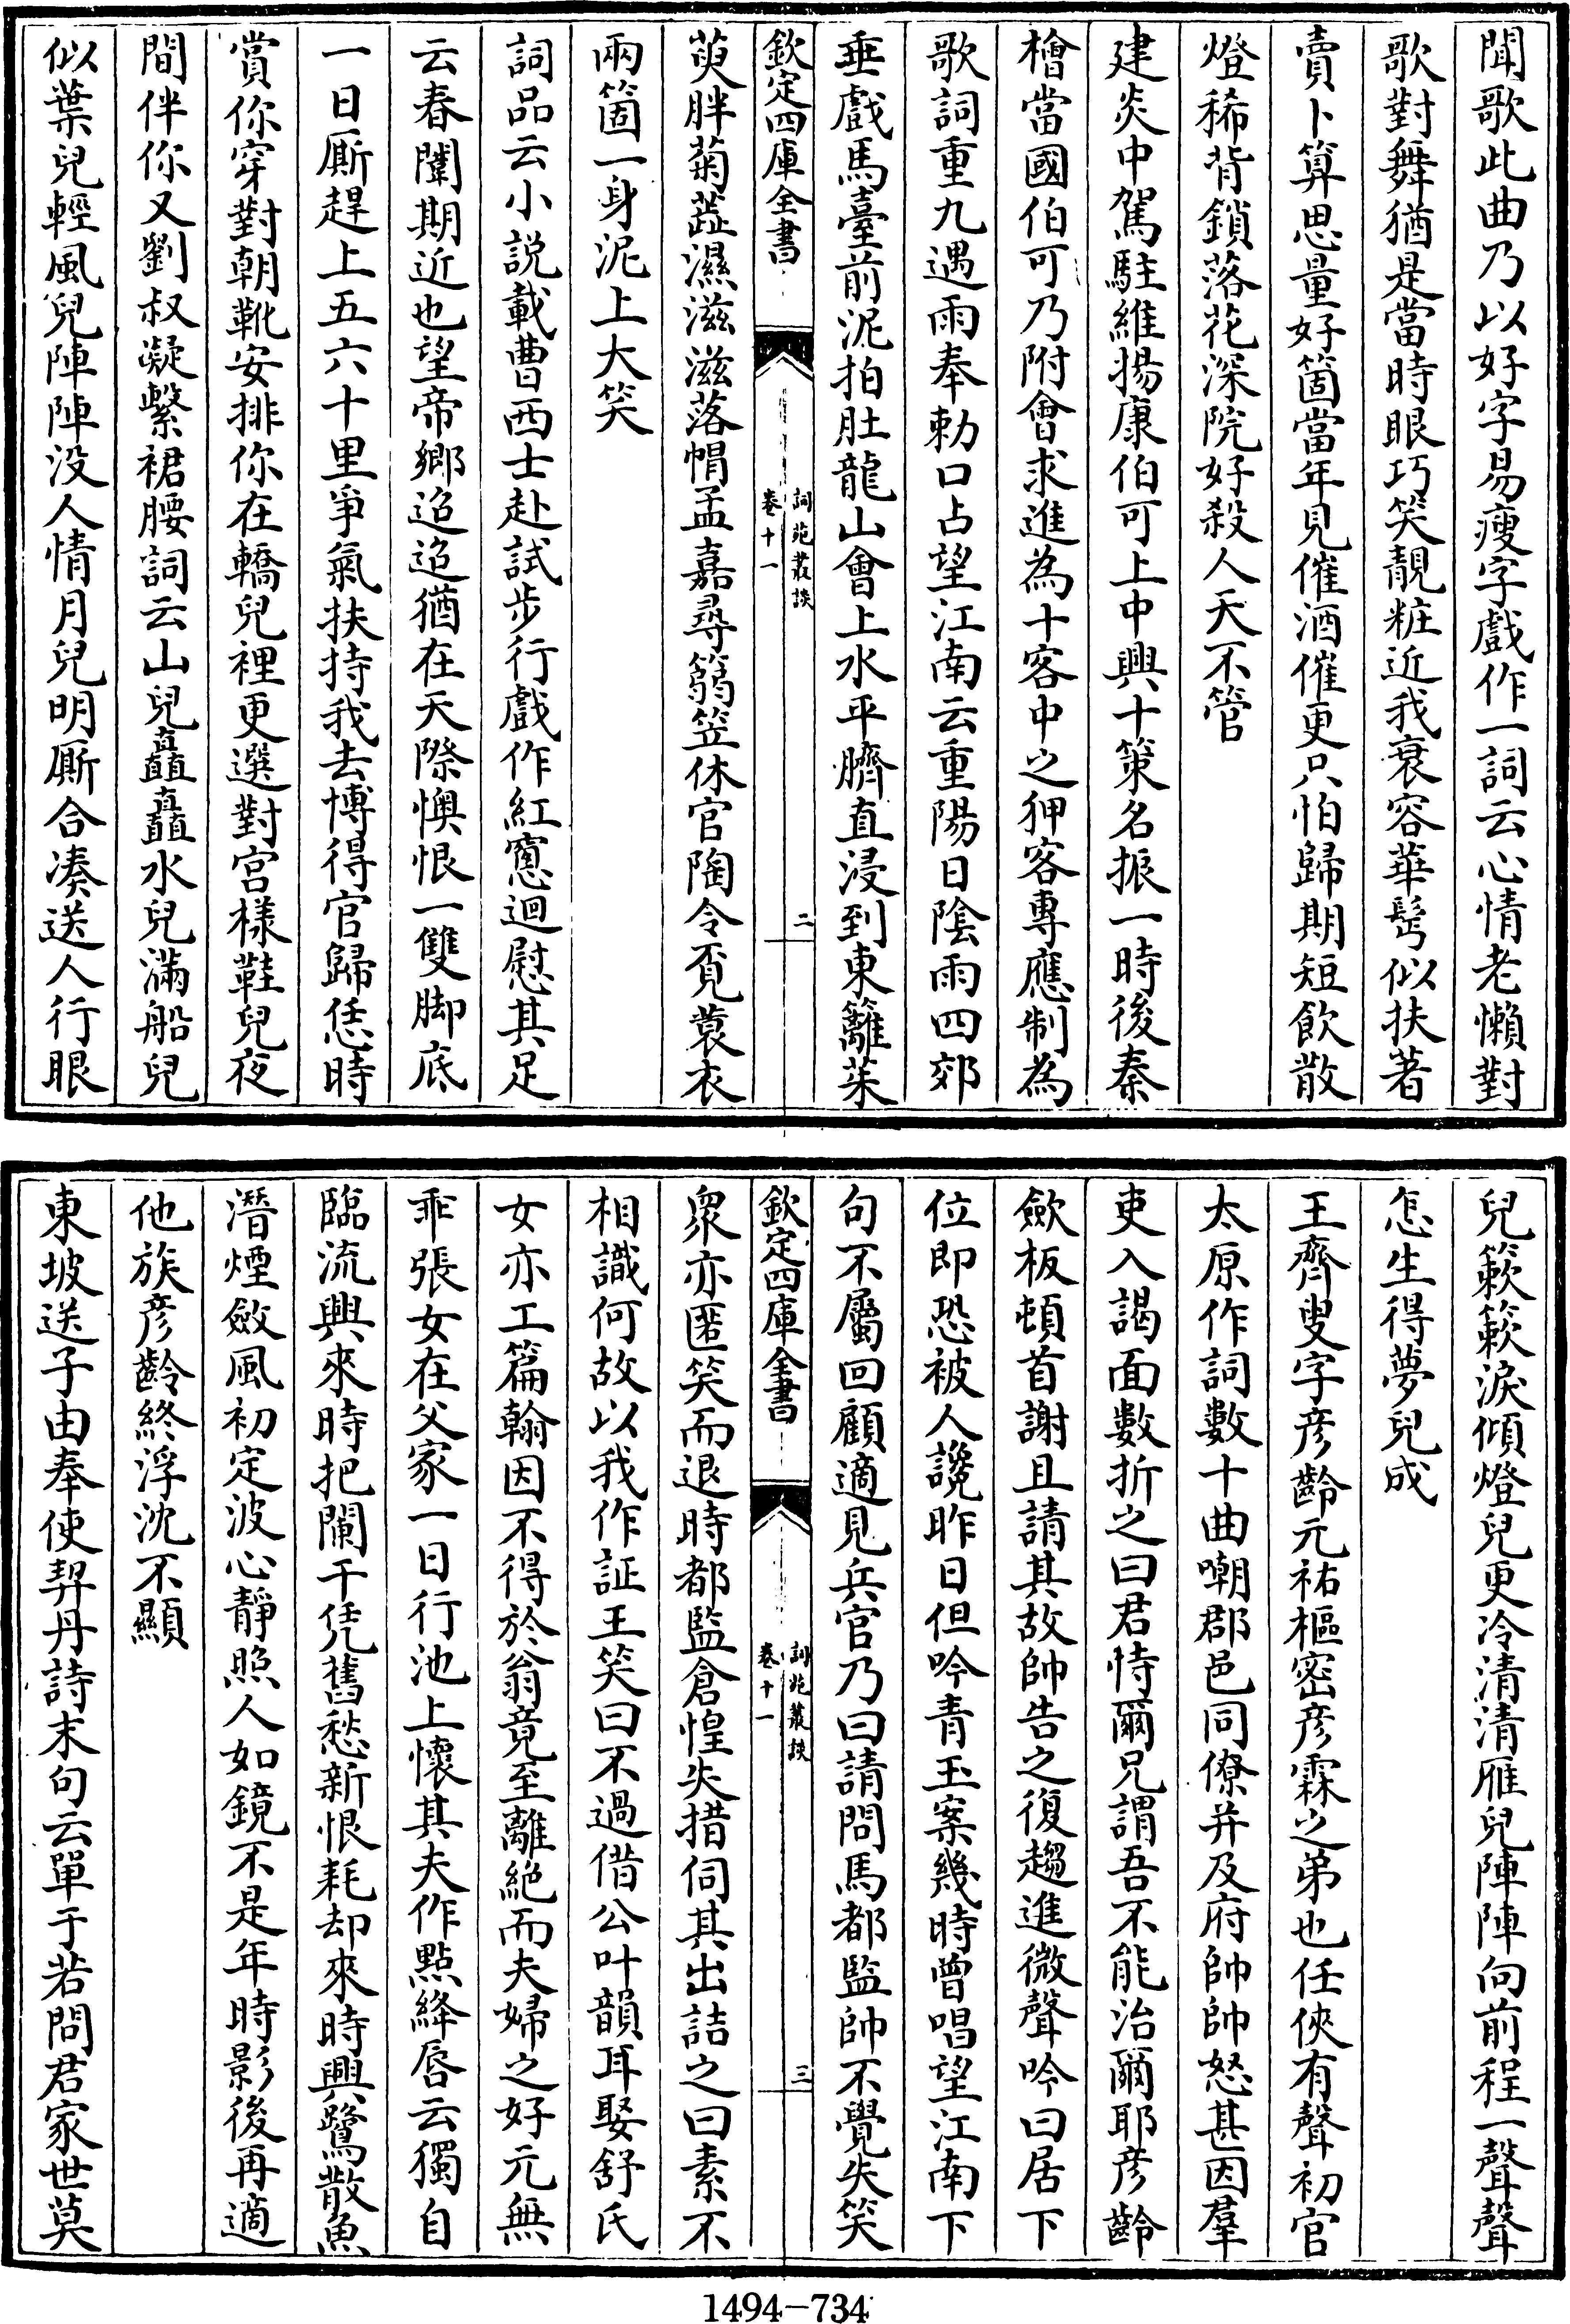 聞歌此曲乃以好字易瘦字戲作一詞云心情老懶對
歌對舞猶是當時眼巧笑靚粧近我衰容華鬂似扶著
賣卜算思量好箇當年見催酒催更只怕歸期短飲散
燈稀背鎖落花深院好殺人天不管
建炎中駕駐維揚康伯可上中興十策名振一時後秦
檜當國伯可乃附會求進為十客中之狎客專應制為
歌詞重九遇雨奉勅口占望江南云重陽日陰雨四郊
垂戲馬臺前泥拍肚龍山會上水平臍直浸到東籬茱
欽定四庫全書
詞苑叢談
卷十一
二
萸胖菊蕋濕滋滋落帽孟嘉尋篛笠休官陶令覓蓑衣
兩箇一身泥上大笑
詞品云小説載曹西士赴試步行戲作紅窻迥慰其足
云春闈期近也望帝鄉迢迢猶在天際懊恨一雙脚底
一日厮趕上五六十里爭氣扶持我去博得官歸恁時
賞你穿對朝靴安排你在轎兒裡更選對宫様鞋兒夜
間伴你又劉叔凝繫裙腰詞云山兒矗矗水兒滿船兒
似葉兒輕風兒陣陣没人情月兒明厮合凑送人行眼
兒簌簌淚傾燈兒更冷清清雁兒陣陣向前程一聲聲
怎生得夢兒成
王齊叟字彦齡元祐樞密彦霖之弟也任俠有聲初官
太原作詞數十曲嘲郡邑同僚并及府帥帥怒甚因羣
吏入謁面數折之曰君恃爾兄謂吾不能治爾耶彦齡
歛板頓首謝且請其故帥告之復趨進微聲吟曰居下
位即恐被人讒昨日但吟青玉案幾時曾唱望江南下
句不屬回顧適見兵官乃曰請問馬都監帥不覺失笑
欽定四庫全書
詞苑叢談
卷十一
三
衆亦匿笑而退時都監倉惶失措伺其出詰之曰素不
相識何故以我作証王笑曰不過借公叶韻耳娶舒氏
女亦工篇翰因不得於翁竟至離絶而夫婦之好元無
乖張女在父家一日行池上懷其夫作點絳唇云獨自
臨流興來時把闌干凭舊愁新恨耗却來時興鷺散魚
潛煙斂風初定波心靜照人如鏡不是年時影後再適
他族彦齡終浮沈不顯
東坡送子由奉使契丹詩末句云單于若問君家世莫
1494-734